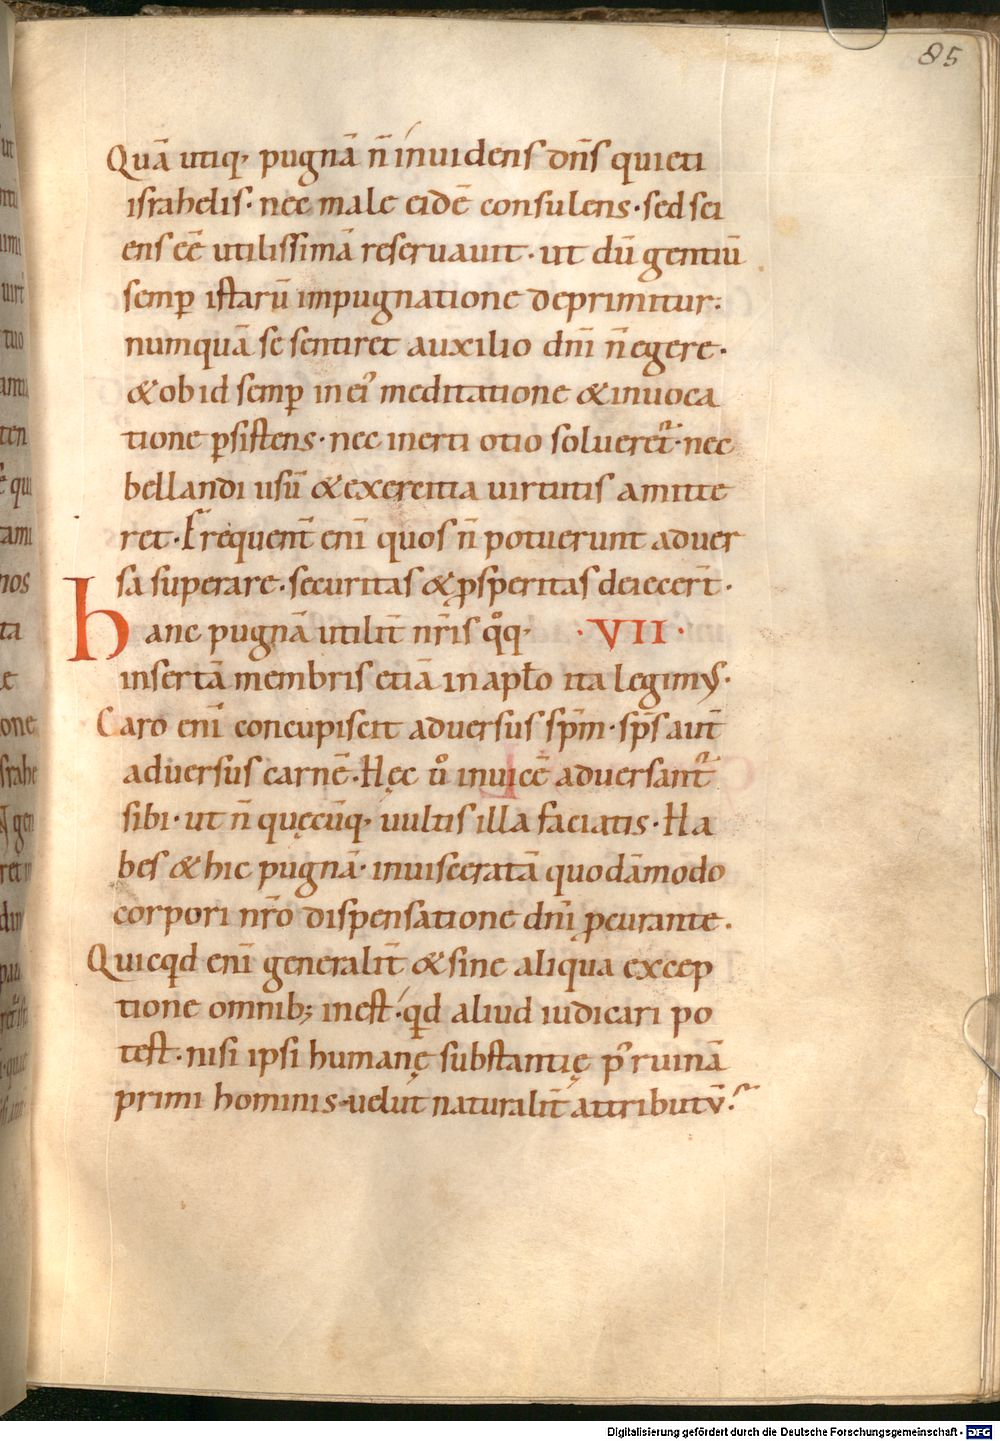 85
Quā utiq; pugnā n̄ inuidens dn̄s quieti
israhelis· nec male eidē consulens· sed sci
ens eē utilissimā reseruauit· ut dū gentiū
semp̄ istarū impugnatione deprimitur:
numquā se sentiret auxilio dn̄i n̄ egere·
& ob id semp̄ in ei' meditatione & inuoca
tione p̱sistens· nec inerti otio solueret̄· nec
bellandi usū & exercitia uirtutis amitte
ret· Frequent̄ eni̅ quos n̄ potuerunt aduer
sa superare· securitas & ꝓsperitas deiecer̄t·
hanc pugnā utilit̄ nr̄is qoq; ·VII·
insertā membris etiā in apl̄o ita legimus·
Caro eni̅ concupiscit aduersus sp̄m· sp̄s aut̄
aduersus carnē· Hęc uͦ inuicē aduersant̄
sibi· ut n̄ quęcūq; uultis illa faciatis· Ha
bes & hic pugnā· inuisceratā quodāmodo
corpori nr̄o dispensatione dn̄i ꝓcurante·
Quicqd eni̅ generalit̄ & sine aliqua excep
tione omnib; inest· qd aliud iudicari po
test· nisi ipsi humanę substantię p' ruinā
primi hominis· uelut naturalit̄ attributū·
Digitalisierung gefördert durch die Deutsche Forschungsgemeinschaft - DFG